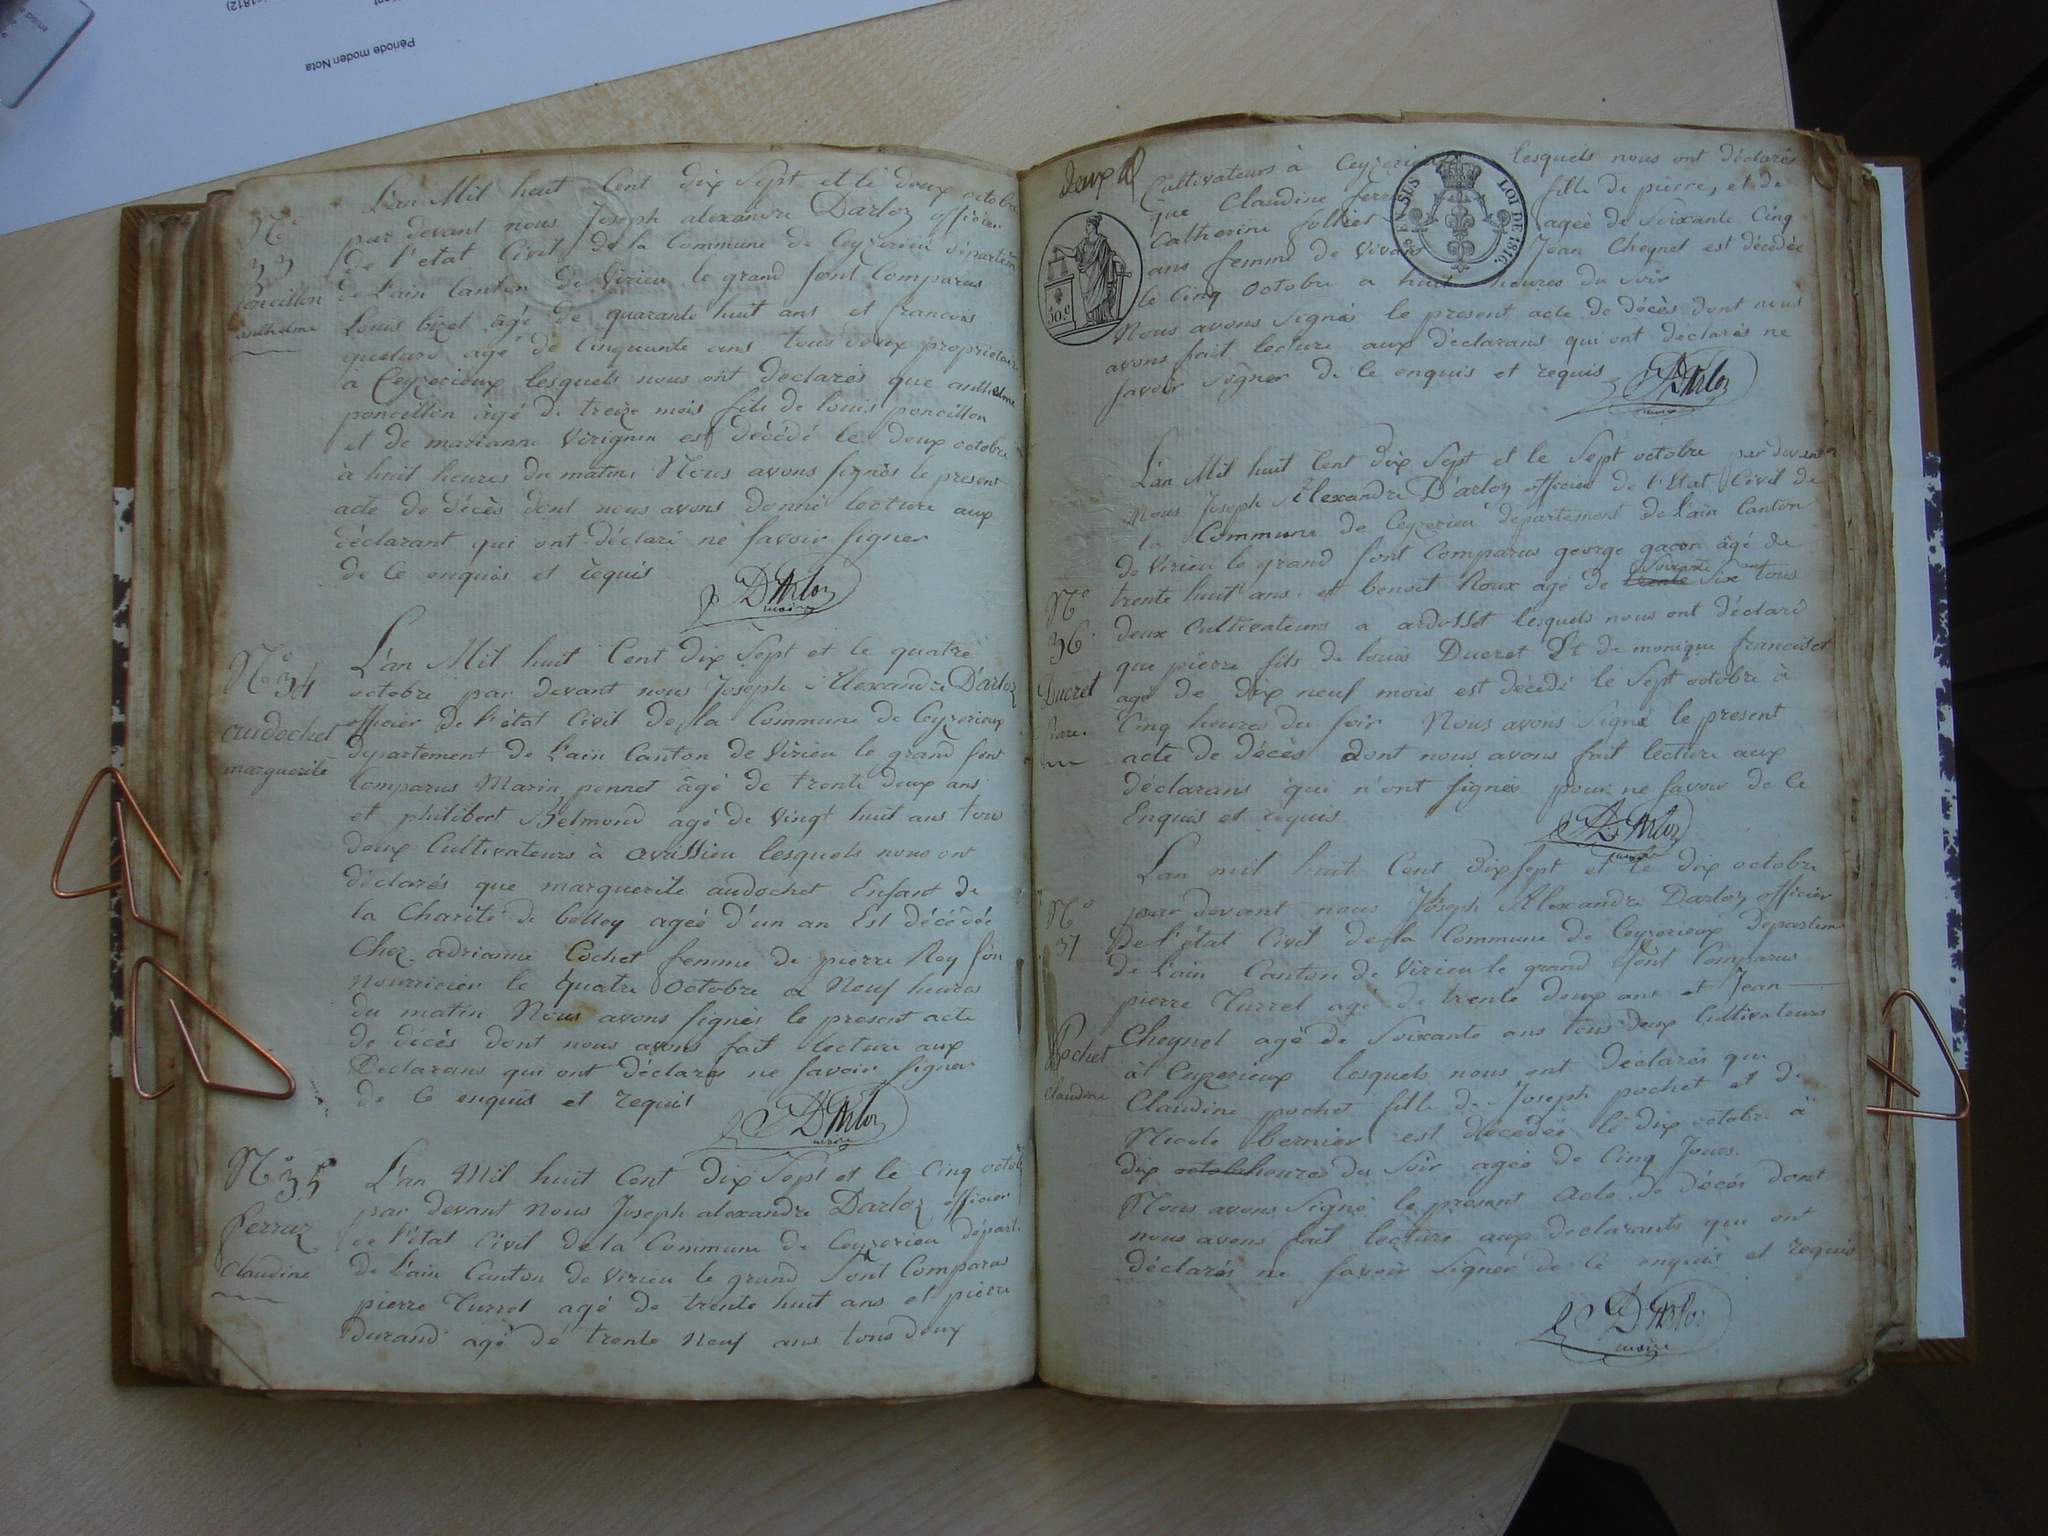 1812)
Période moden Nota
No
33
poncillon
anthelme
L'an Mil huit Cent dix Sept et le deux octobre
par devant nous Joseph alexandre Darloz officier
de l'etat Civil de la Commune de Ceyzerieu départem
de L'ain Canton de Virieu le grand sont Comparus
Louis bizet âgé de quarante huit ans et francois
quelard agé de Cinquante ans tous deux propriétaire
à Ceyzerieux lesquels nous ont declarés que anthelme
poncillon âgé de treize mois fils de louis poncillon
et de marianne Virignin est décédé le deux octobre
à huit heures du matin Nous avons signés le present
acte de décès dont nous avons donné lecture aux
déclarant qui ont déclaré ne savoir signer
de Ce enquis et requis
DArloz
maire
No 34
audochet
marguerite
L'an Mil huit Cent dix Sept et le quatre
octobre par devant nous Joseph Alexandre D'arloz
officier de l'état Civil de la Commune de Ceyzerieux
departement de L'ain Canton de Virieu le grand sont
Comparus Marin ponnet âgé de trente deux ans
et philibert Belmond agé de Vingt huit ans tous
deux Cultivateurs à avrissieu lesquels nous ont
déclarés que marguerite audochet Enfant de
la Charité de belley ageé d'un an Est décédée
Chez adrianne Cochet femme de pierre Rey son
nourricier le quatre Octobre a Neuf heures
du matin Nous avons signés le present acte
de décès dont nous avons fait lecture aux
Declarans qui ont déclarés ne savoir signer
de Ce enquis et requis
DArloz
maire
No 35
ferraz
Claudine
L'an Mil huit Cent dix Sept et le Cinq octob
par devant nous Joseph alexandre Darloz officier
de l'état Civil de la Commune de Ceyzerieu départ.
de L'ain Canton de Virieu le grand Sont Comparus
pierre Turrel agé de trente huit ans et pierre
Durand agé de trente Neuf ans tous deux
deux
50.c
EN SUS
LOI DE 1816.
Cultivateurs à Ceyzerieu lesquels nous ont déclarés
que Claudine ferr fille de pierre, et de
Catherine folliet ageé de Soixante Cinq
ans femme de Vivant Jean Cheynel est décédée
le Cinq Octobre a huit heures du soir
Nous avons signés le present acte de décès dont nous
avons fait lecture aux déclarans qui ont declarés ne
savoir signer de Ce enquis et requis
DArloz
maire
No
36
Ducret
Pierre.
L'an Mil huit Cent dix Sept et le Sept octobre par devant
nous Joseph Alexandre D'arloz officier de l'Etat Civil de
la Commune de Ceyzerieu departement de L'ain Canton
de Virieu le grand sont Comparus george gacon âgé de
Soixante ans
trente huit ans et benoit Roux agé de trente Six tous
deux Cultivateurs a ardosset lesquels nous ont déclaré
que pierre fils de louis Ducret Et de monique franciset
agé de dix neuf mois est décédé le Sept octobre à
Cinq heures du soir Nous avons Signé le present
acte de décès dont nous avons fait lecture aux
déclarans qui n'ont signés pour ne savoir de Ce
Enquis et requis
DArloz
maire
No
37
Pochet
Claudine
L'an mil huit Cent dix sept et le dix octobre
par devant nous Joseph Alexandre Darloz officier
De l'état Civil de la Commune de Ceyzerieux Départem
de L'ain Canton de Virieu le grand Sont Comparus
pierre Turrel agé de trente deux ans et Jean
Cheynel agé de Soixante ans tous deux Cultivateurs
à Ceyzerieux lesquels nous ont déclarés que
Claudine pochet fille de Joseph pochet et de
Nicole bernier est décédée le dix octobre à
dix octobr heures du Soir ageé de Cinq Jours.
Nous avons Signé le present Acte de décès dont
nous avons fait lecture aux declarants qui ont
déclarés ne savoir Signer de Ce enquis et requis
DArloz
maire